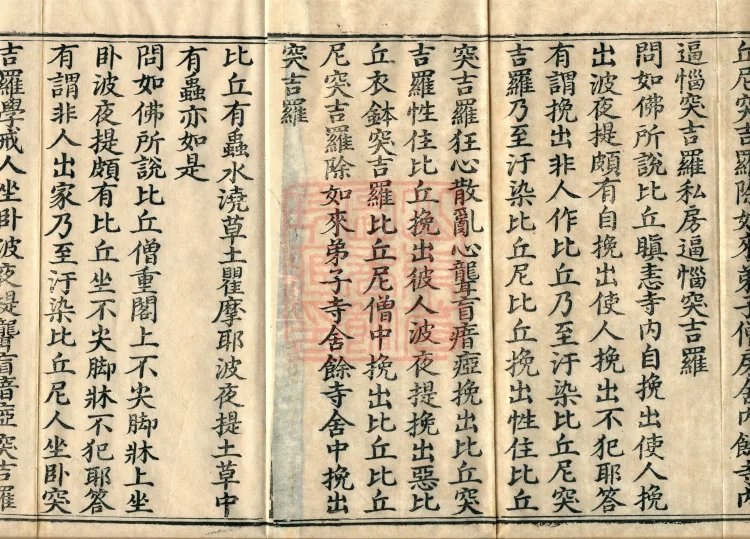 丘尼突吉羅除如來弟子僧房舍內餘寺內
逼惱突吉羅私房逼惱突吉羅
問如佛所說比丘瞋恚寺內自挽出使人挽
出波夜提頗有自挽出使人挽出不犯耶答
有謂挽出非人作比丘乃至汙染比丘尼突
吉羅乃至汙染比丘尼比丘挽出性住比丘
突吉羅狂心散亂心聾盲瘖瘂挽出比丘突
吉羅性住比丘挽出彼人波夜提挽出惡比
丘衣鉢突吉羅比丘尼僧中挽出比丘比丘
尼突吉羅除如來弟子寺舍餘寺舍中挽出
突吉羅
比丘有蟲水澆草土瞿摩耶波夜提土草中
有蟲亦如是
問如佛所說比丘僧重閣上不尖脚牀上坐
卧波夜提頗有比丘坐不尖脚牀不犯耶答
有謂非人出家乃至汙染比丘尼人坐卧突
吉羅學戒人坐卧波夜提聾盲瘖瘂突吉羅